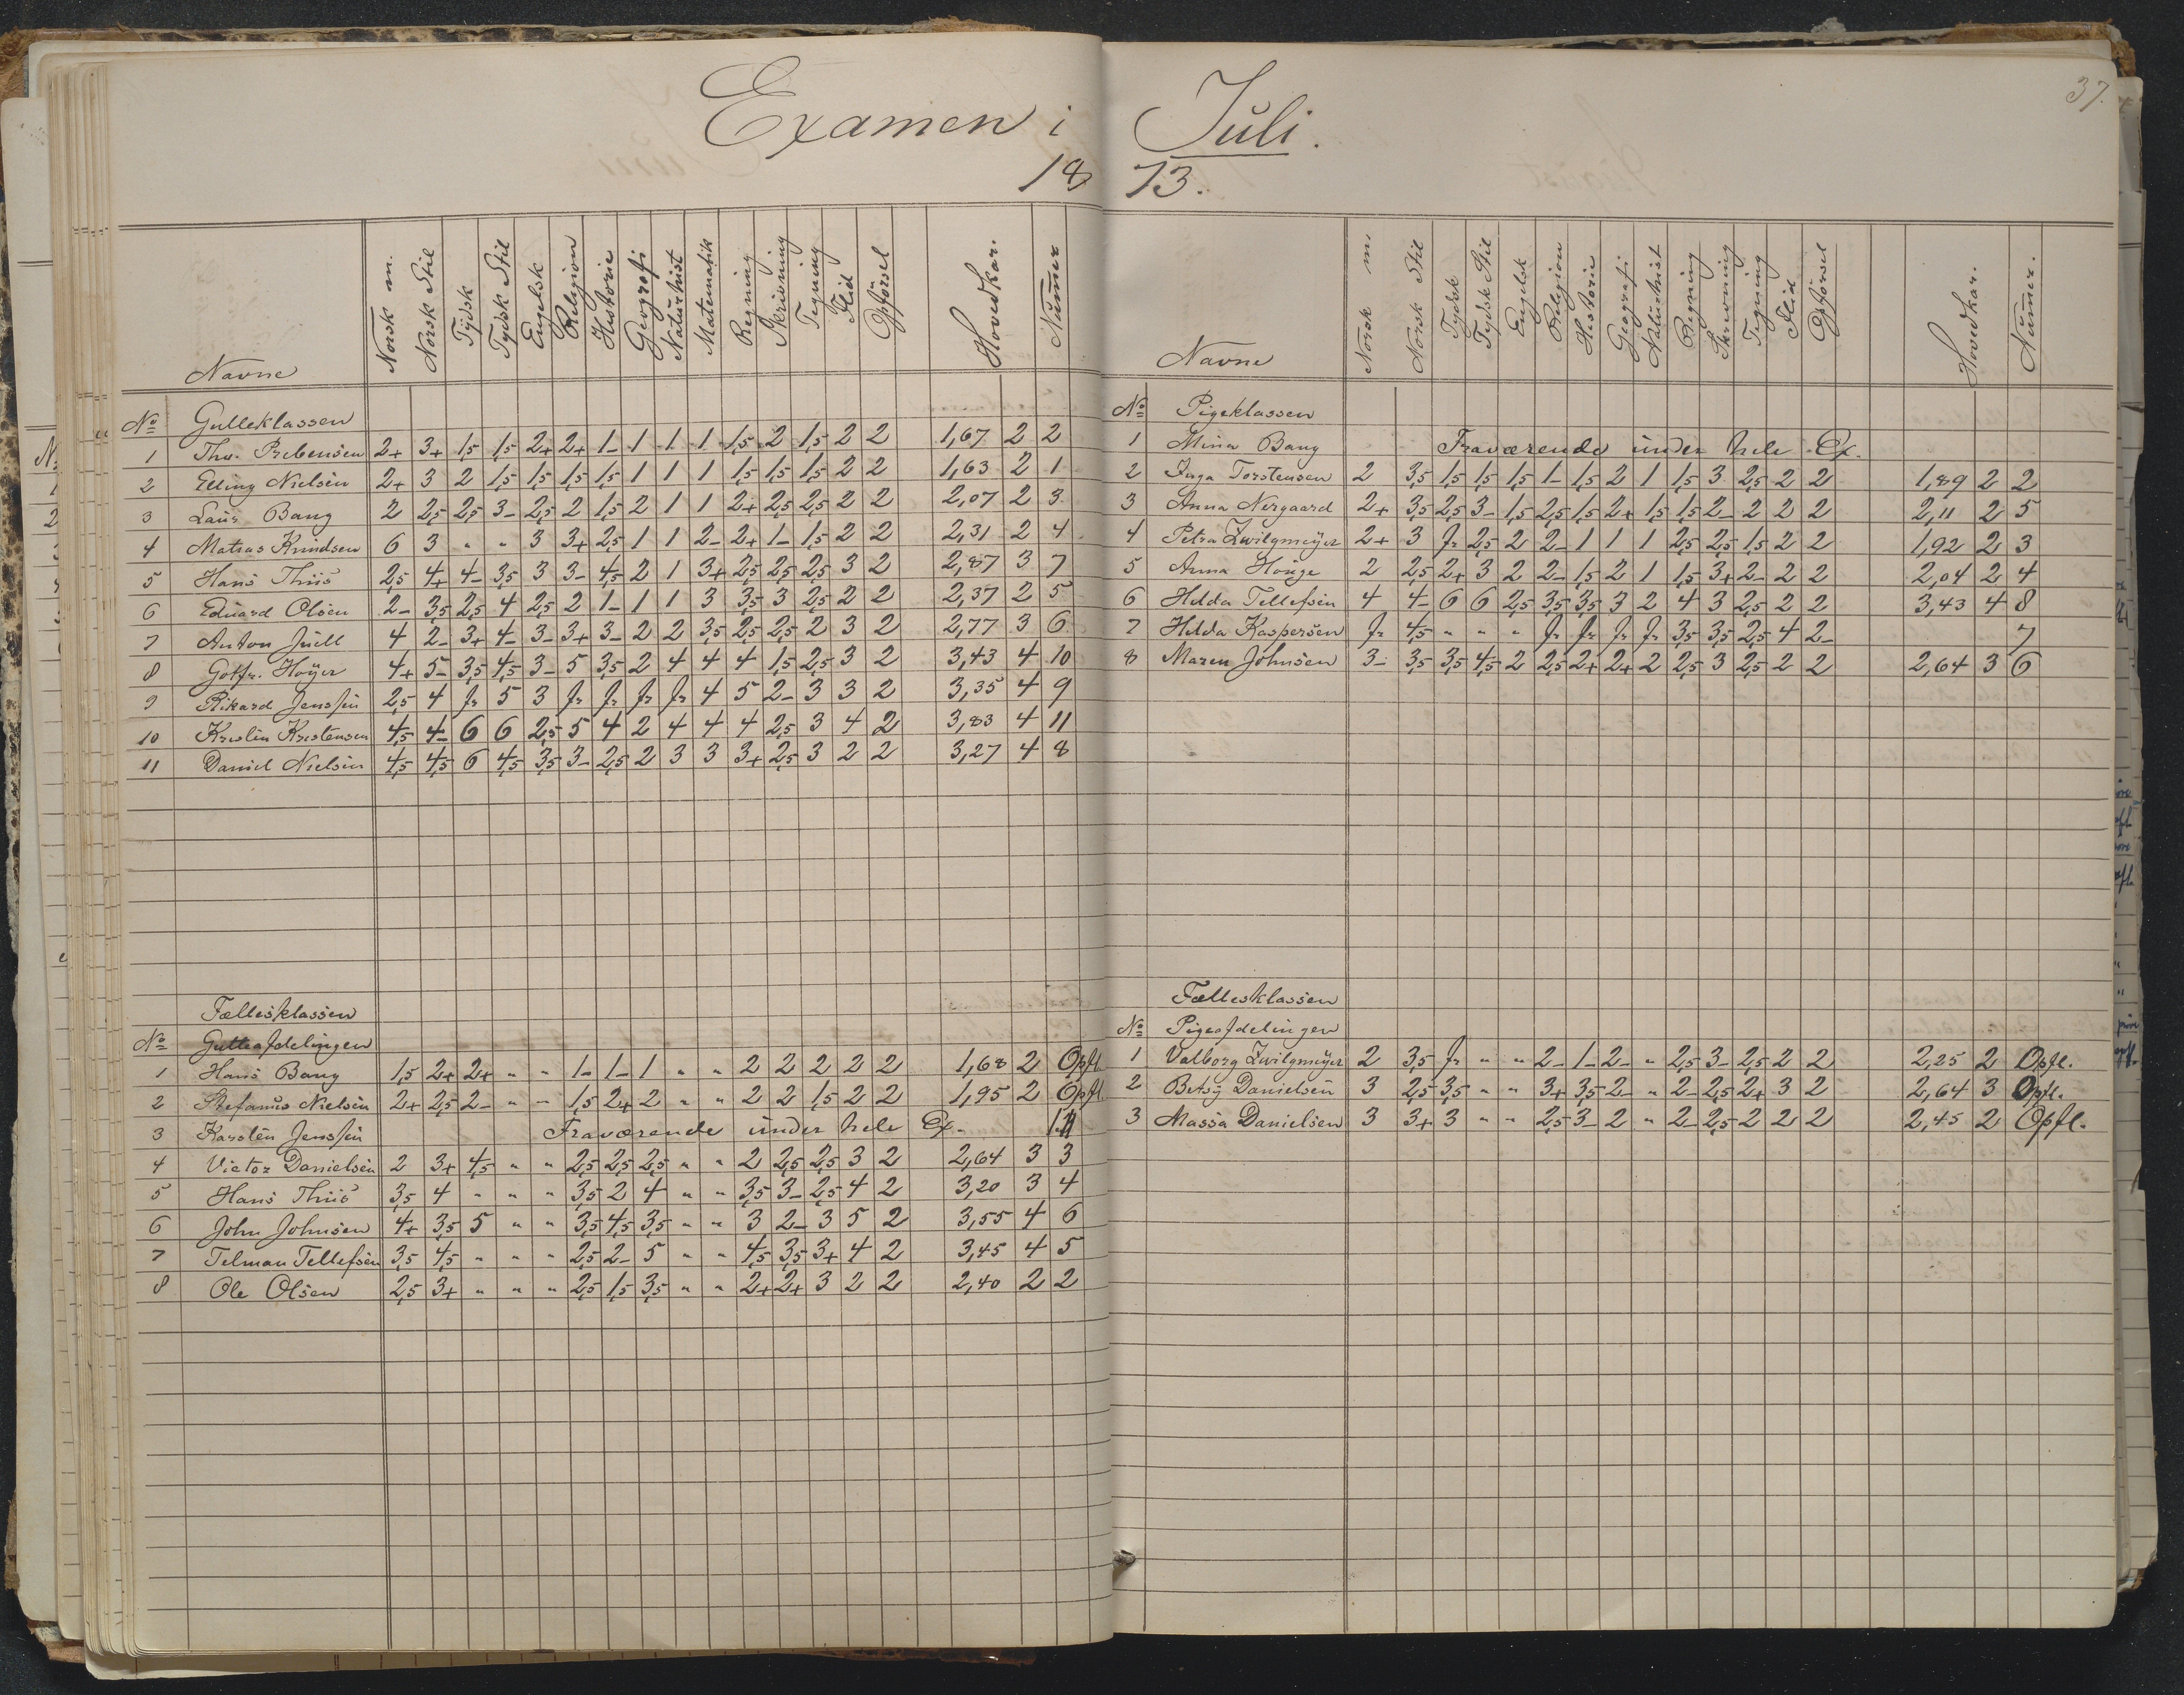 37.
Examen i Juli.
1873.
Navne Norsk m. Norsk Stil Tydsk Tydsk Stil Engelsk Religion Historie Geografi Naturhist Matematik Regning Skrivning Tegning Flid Opførsel Hovedkar. Numer
No Gutteklassen
1 Ths. Prebensen 2+ 3+ 1,5 1,5 2+ 2+ 1- 1 1 1 1,5 2 1,5 2 2 1,67 2 2
2 Elling Nielsen 2+ 3 2 1,5 1,5 1,5 1,5 1 1 1 1,5 1,5 1,5 2 2 1,63 2 1
3 Laur Bang 2 2,5 2,5 3- 2,5 2 1,5 2 1 1 2+ 2,5 2,5 2 2 2,07 2 3
4 Matias Knudsen 6 3 " " 3 3+ 2,5 1 1 2- 2+ 1- 1,5 2 2 2,31 2 4
5 Hans Thiis 2,5 4+ 4- 3,5 3 3- 4,5 2 1 3+ 2,5 2,5 2,5 3 2 2,87 3 7
6 Eduard Olsen 2- 3,5 2,5 4 2,5 2 1- 1 1 3 3,5 3 2,5 2 2 2,37 2 5
7 Anton Juell 4 2- 3+ 4- 3- 3+ 3- 2 2 3,5 2,5 2,5 2 3 2 2,77 3 6
8 Gotfr. Høyer 4+ 5- 3,5 4,5 3- 5 3,5 2 4 4 4 1,5 2,5 3 2 3,43 4 10
9 Rikard Jenssen 2,5 4 fr 5 3 fr fr fr fr 4 5 2- 3 3 2 3,35 4 9
10 Kristen Kristensen 4,5 4- 6 6 2,5 5 4 2 4 4 4 2,5 3 4 2 3,83 4 11
11 Daniel Nielsen 4,5 4,5 6 4,5 3,5 3- 2,5 2 3 3 3+ 2,5 3 2 2 3,27 4 8
Fællesklassen
No Gutteafdelingen
1 Hans Bang 1,5 2+ 2+ " " 1- 1- 1 " " 2 2 2 2 2 1,68 2 Opfl.
2 Stefanus Nielsen 2+ 2,5 2- " " 1,5 2+ 2 " " 2 2 1,5 2 2 1,95 2 Opfl.
3 Karsten Jenssen Fraværende under hele Ex.
4 Victor Danielsen 2 3+ 4,5 " " 2,5 2,5 2,5 " " 2 2,5 2,5 3 2 2,64 3 3
5 Hans Thiis 3,5 4 " " " 3,5 2 4 " " 3,5 3- 2,5 4 2 3,20 3 4
6 John Johnsen 4+ 3,5 5 " " 3,5 4,5 3,5 " " 3 2- 3 5 2 3,55 4 6
7 Telman Tellefsen 3,5 4,5 " " " 2,5 2- 5 " " 4,5 3,5 3+ 4 2 3,45 4 5
8 Ole Olsen 2,5 3+ " " " 2,5 1,5 3,5 " " 2+ 2+ 3 2 2 2,40 2 2
Navne Norsk m. Norsk Stil Tydsk Tydsk Stil Engelsk Religion Historie Geografi Naturhist Regning Skrivning Tegning Flid Opførsel Hovedkar. Numer.
No Pigeklassen
1 Mina Bang Fraværende under hele Ex.
2 Inga Torstensen 2 3,5 1,5 1,5 1,5 1- 1,5 2 1 1,5 3 2,5 2 2 1,89 2 2
3 Anna Nergaard 2+ 3,5 2,5 3- 1,5 2,5 1,5 2+ 1,5 1,5 2- 2 2 2 2,11 2 5
4 Petra Zwilgmeyer 2+ 3 fr 2,5 2 2- 1 1 1 2,5 2,5 1,5 2 2 1,92 2 3
5 Anna Houge 2 2,5 2+ 3 2 2- 1,5 2 1 1,5 3+ 2- 2 2 2,04 2 4
6 Helda Tellefsen 4 4- 6 6 2,5 3,5 3,5 3 2 4 3 2,5 2 2 3,43 4 8
7 Helda Kaspersen fr 4,5 " " " fr fr fr fr 3,5 3,5 2,5 4 2- 7
8 Maren Johnsen 3- 3,5 3,5 4,5 2 2,5 2+ 2+ 2 2,5 3 2,5 2 2 2,64 3 6
Fællesklassen
No Pigeafdelingen
1 Valborg Zwilgmeyer 2 3,5 fr " " 2- 1- 2- " 2,5 3- 2,5 2 2 2,25 2 Opfl.
2 Betsy Danielsen 3 2,5 3,5 " " 3+ 3,5 2- " 2- 2,5 2+ 3 2 2,64 3 Opfl.
3 Massa Danielsen 3 3+ 3 " " 2,5 3- 2 " 2- 2,5 2 2 2 2,45 2 Opfl.